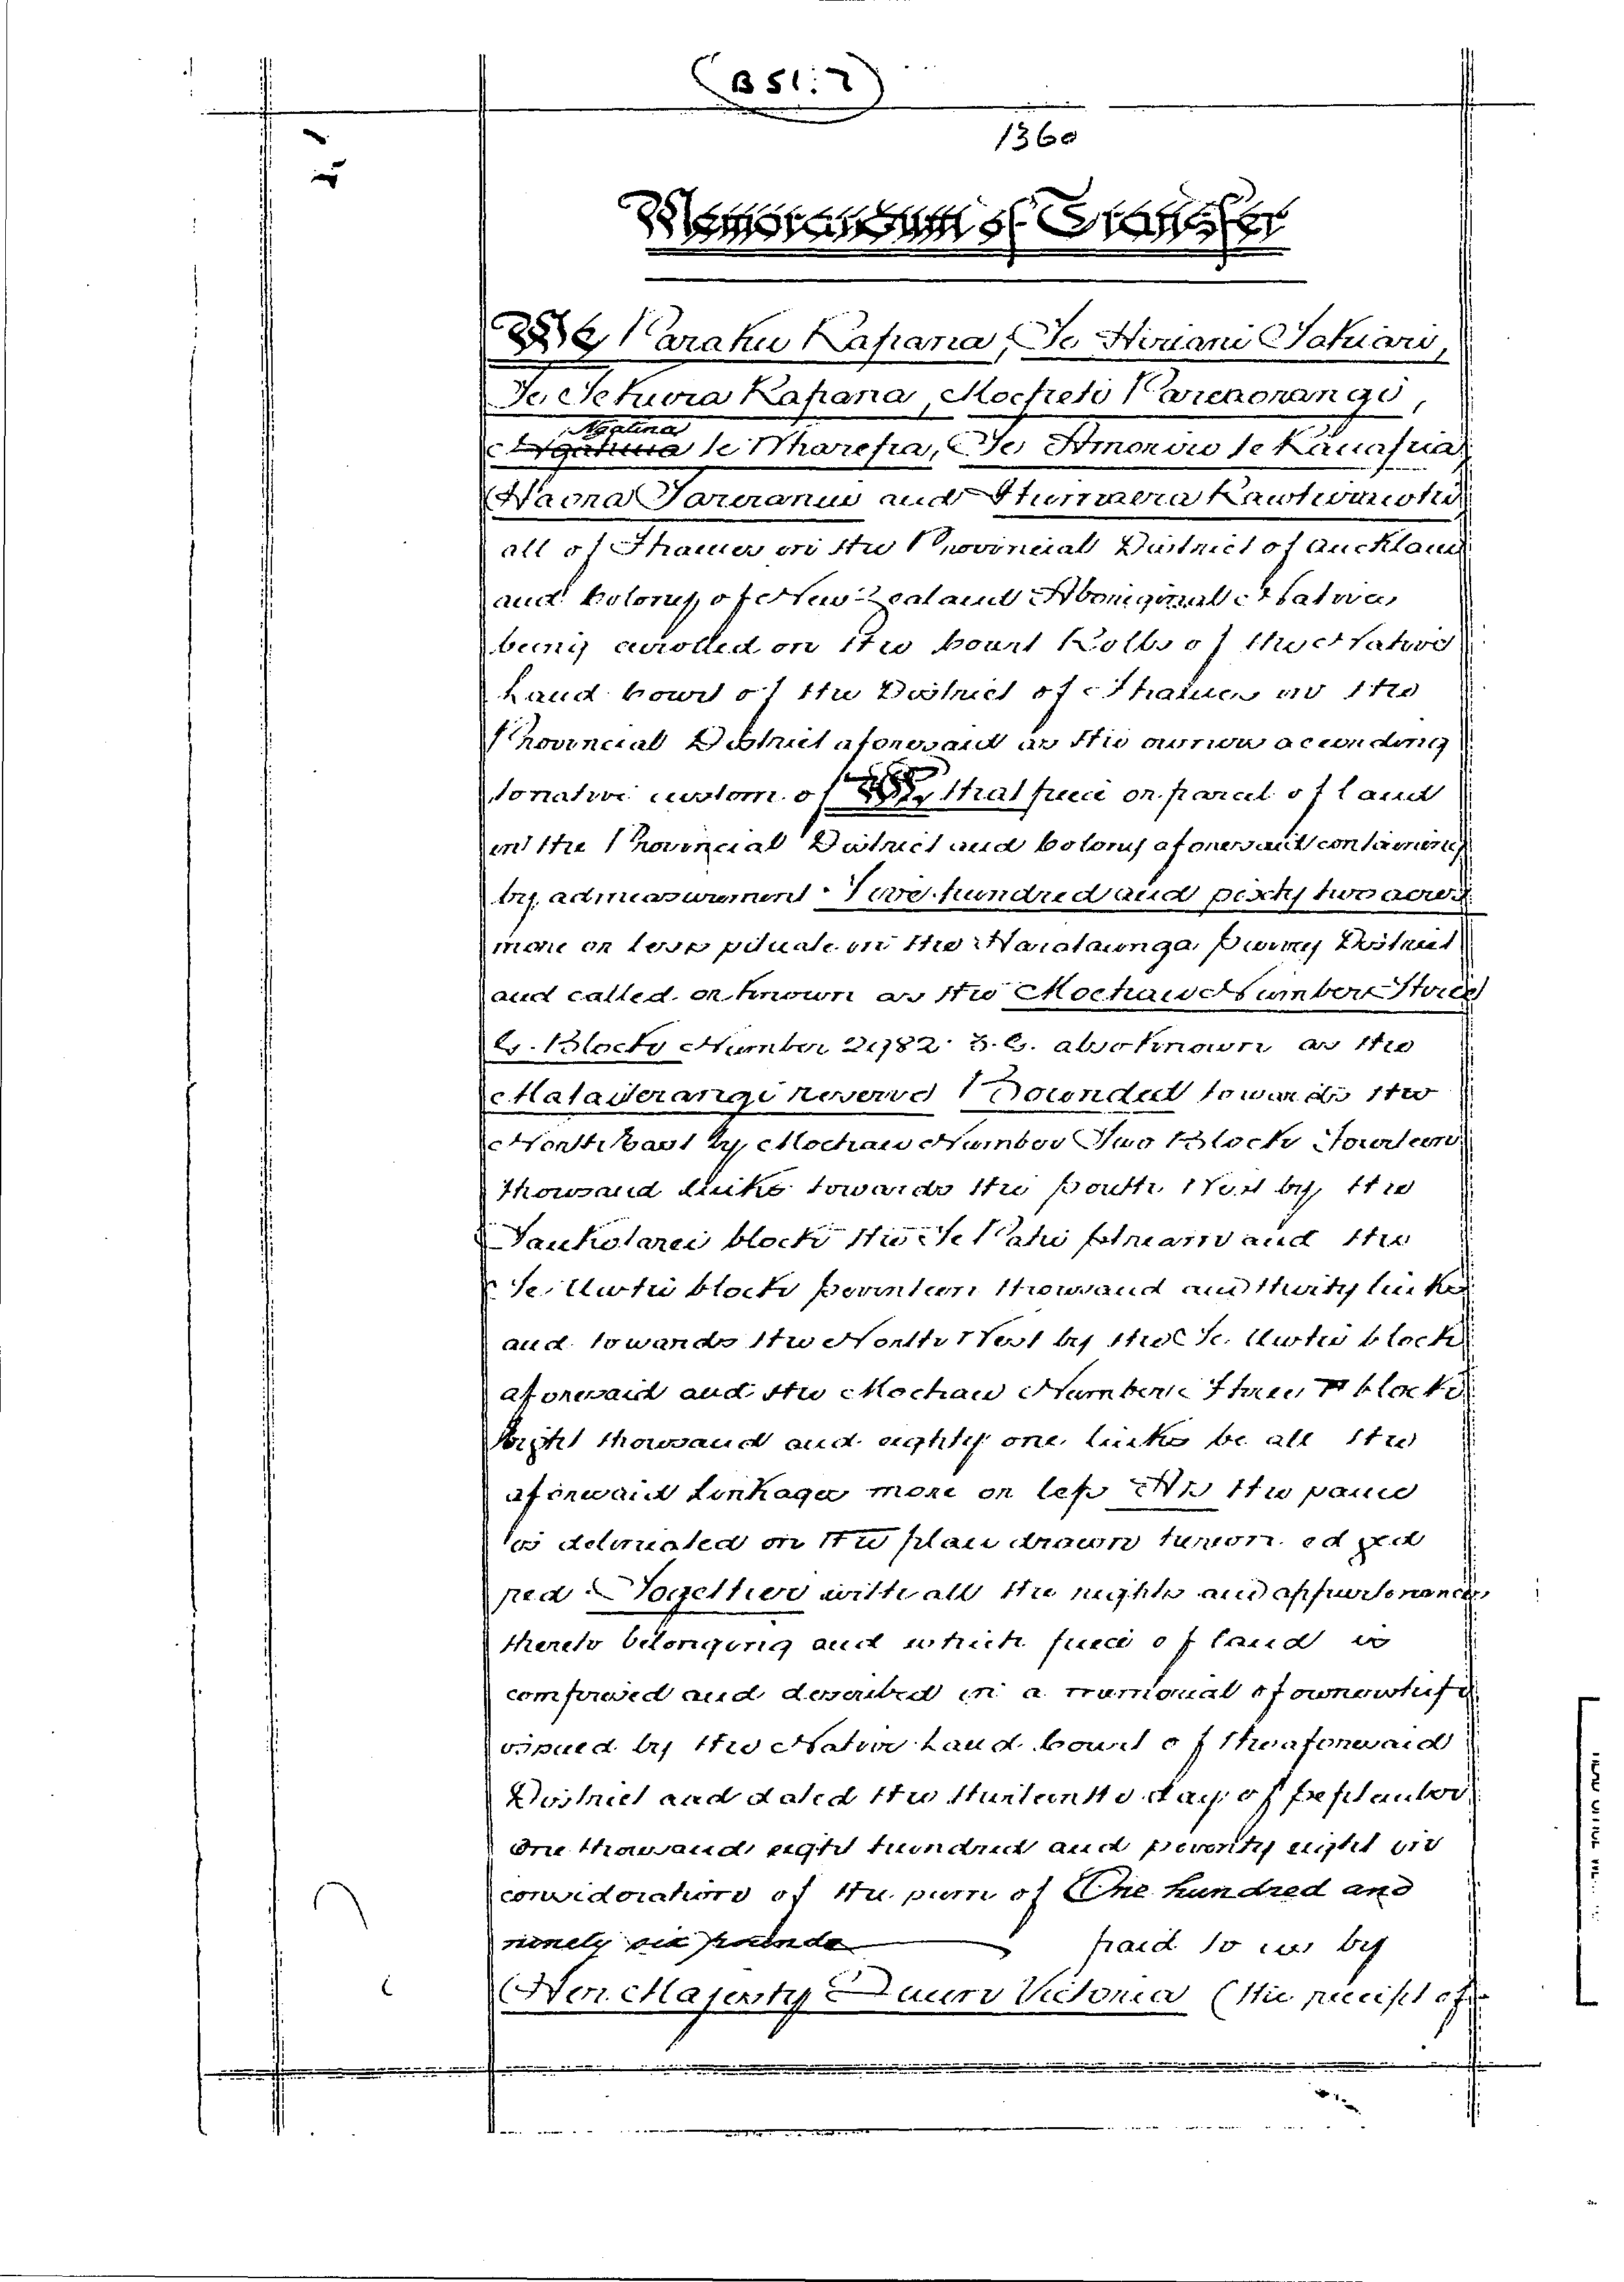 (B 51:7)
1360
Memorandum of Transfer
We Paraku Rapana, Te Hiriani Takuari,
Te Tekuira Rapana, Moeheti Parenorangi,
Ngatina
Ngahuia te Wharepa, Te Amoriri te Kauapua,
Haora Tareranui and
all of Thames in the Provincial District of Auckland
and Colony of New Zealand Aboriginal Natives
being enrolled on the Court Rolls of the Native
Land Court of the District of Thames in the
Provincial District aforesaid as the owners according
to native custom of All that piece or parcel of land
in the Provincial District and Colony aforesaid containing
by admeasurement Five hundred and sixty two acres
more or less situate in the Harataunga Survey District
and called or known as the Moehau Number Three
G. Block Number 2982 3.G. also known as the
Mataiterangi Reserve Bounded towards the
North East by Moehau Number Two Block Fourteen
thousand links towards the South West by the
Taukatarei block the Te Pahi stream and the
Te Uwhi block Seventeen thousand and thirty links
and towards the North West by the Te Uwhi block
aforesaid and the Moehau Number Three F block
Eight thousand and eighty one links be all the
aforesaid Linkages more or less As the same
is delineated on the plan drawn hereon edged
red Together with all the rights and appurtenances
thereto belonging and which piece of land is
comprised and described in a memorial of ownership
issued by the Native Land Court of the aforesaid
District and dated the thirteenth day of September
One thousand eight hundred and seventy eight in
consideration of the sum of One hundred and
ninety six pounds paid to us by
Her Majesty Queen Victoria (the receipt of